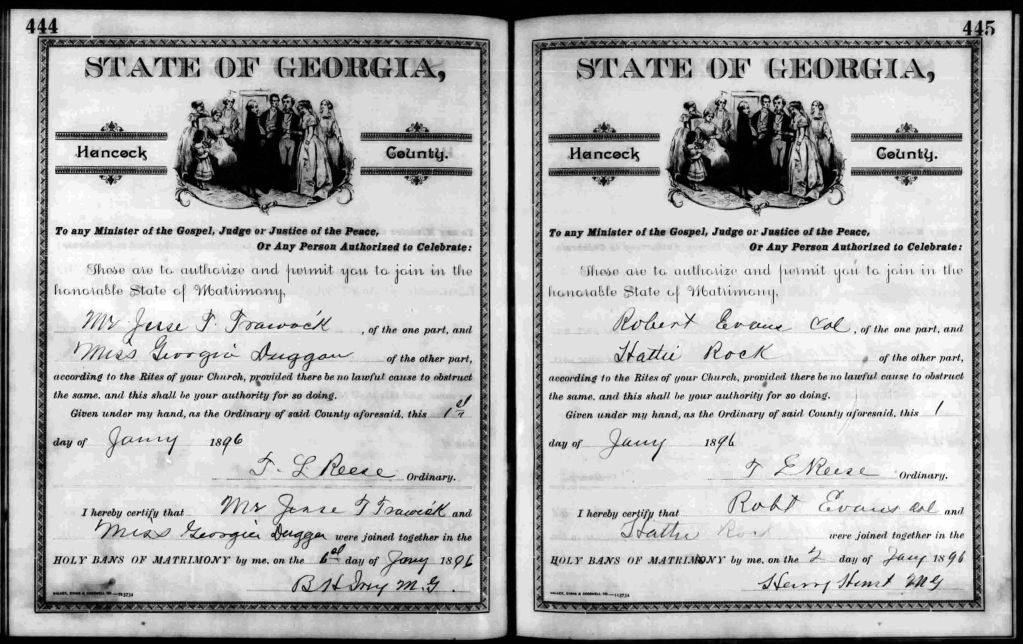 444
STATE OF GEORGIA,
Hancock County.
To any Minister of the Gospel, Judge or Justice of the Peace,
Or Any Person Authorized to Celebrate:
These are to authorize and permit you to join in the
honorable State of Matrimony,
Mr Jesse F. Trawick, of the one part, and
Miss Georgia Duggan of the other part,
according to the Rites of your Church, provided there be no lawful cause to obstruct
the same, and this shall be your authority for so doing.
Given under my hand, as the Ordinary of said County aforesaid, this 1st
day of Jany 1896
T. L Reese Ordinary.
I hereby certify that Mr Jesse F Trawick and
Miss Georgia Duggan were joined together in the
HOLY BANS OF MATRIMONY by me, on the 6 day of Jany 1896
B H Ivy M.G.
445
STATE OF GEORGIA,
Hancock County.
To any Minister of the Gospel, Judge or Justice of the Peace,
Or Any Person Authorized to Celebrate:
These are to authorize and permit you to join in the
honorable State of Matrimony,
Robert Evans Col, of the one part, and
Hattie Rock of the other part,
according to the Rites of your Church, provided there be no lawful cause to obstruct
the same, and this shall be your authority for so doing.
Given under my hand, as the Ordinary of said County aforesaid, this 1
day of Jany 1896
Reese Ordinary.
I hereby certify that Robt Evans Col and
Hattie Rock were joined together in the
HOLY BANS OF MATRIMONY by me, on the 2 day of Jany 1896
Henry Hunt MG